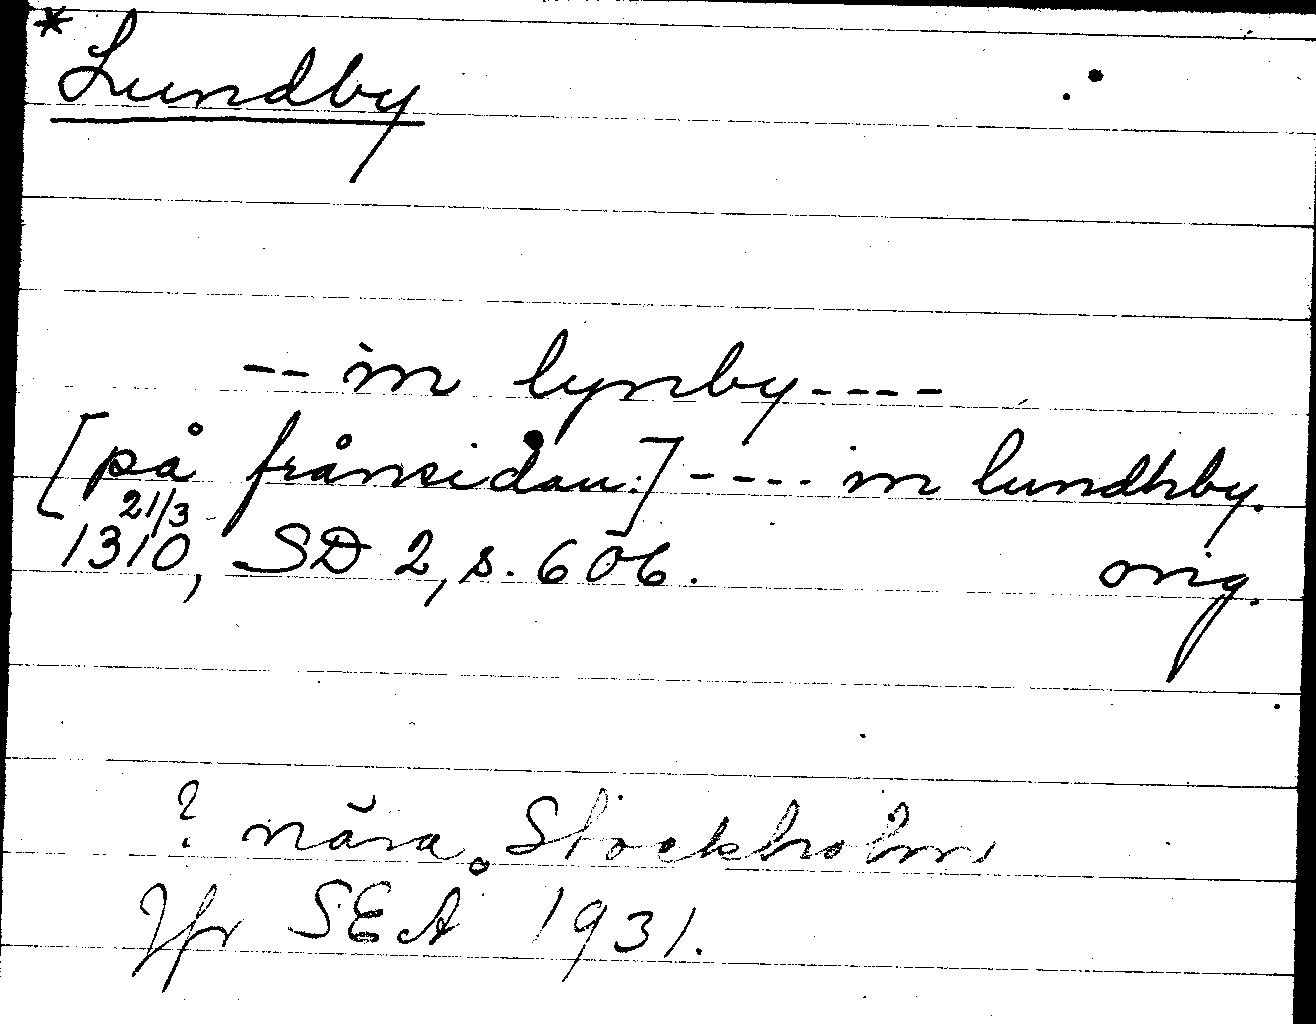 * Lundby
-- in lynby ----
[på frånsidan:] ---- in lundhby.
21/3 1310, SD 2, s. 606. orig.
? nära Stockholm
Jfr SEÅ 1931.